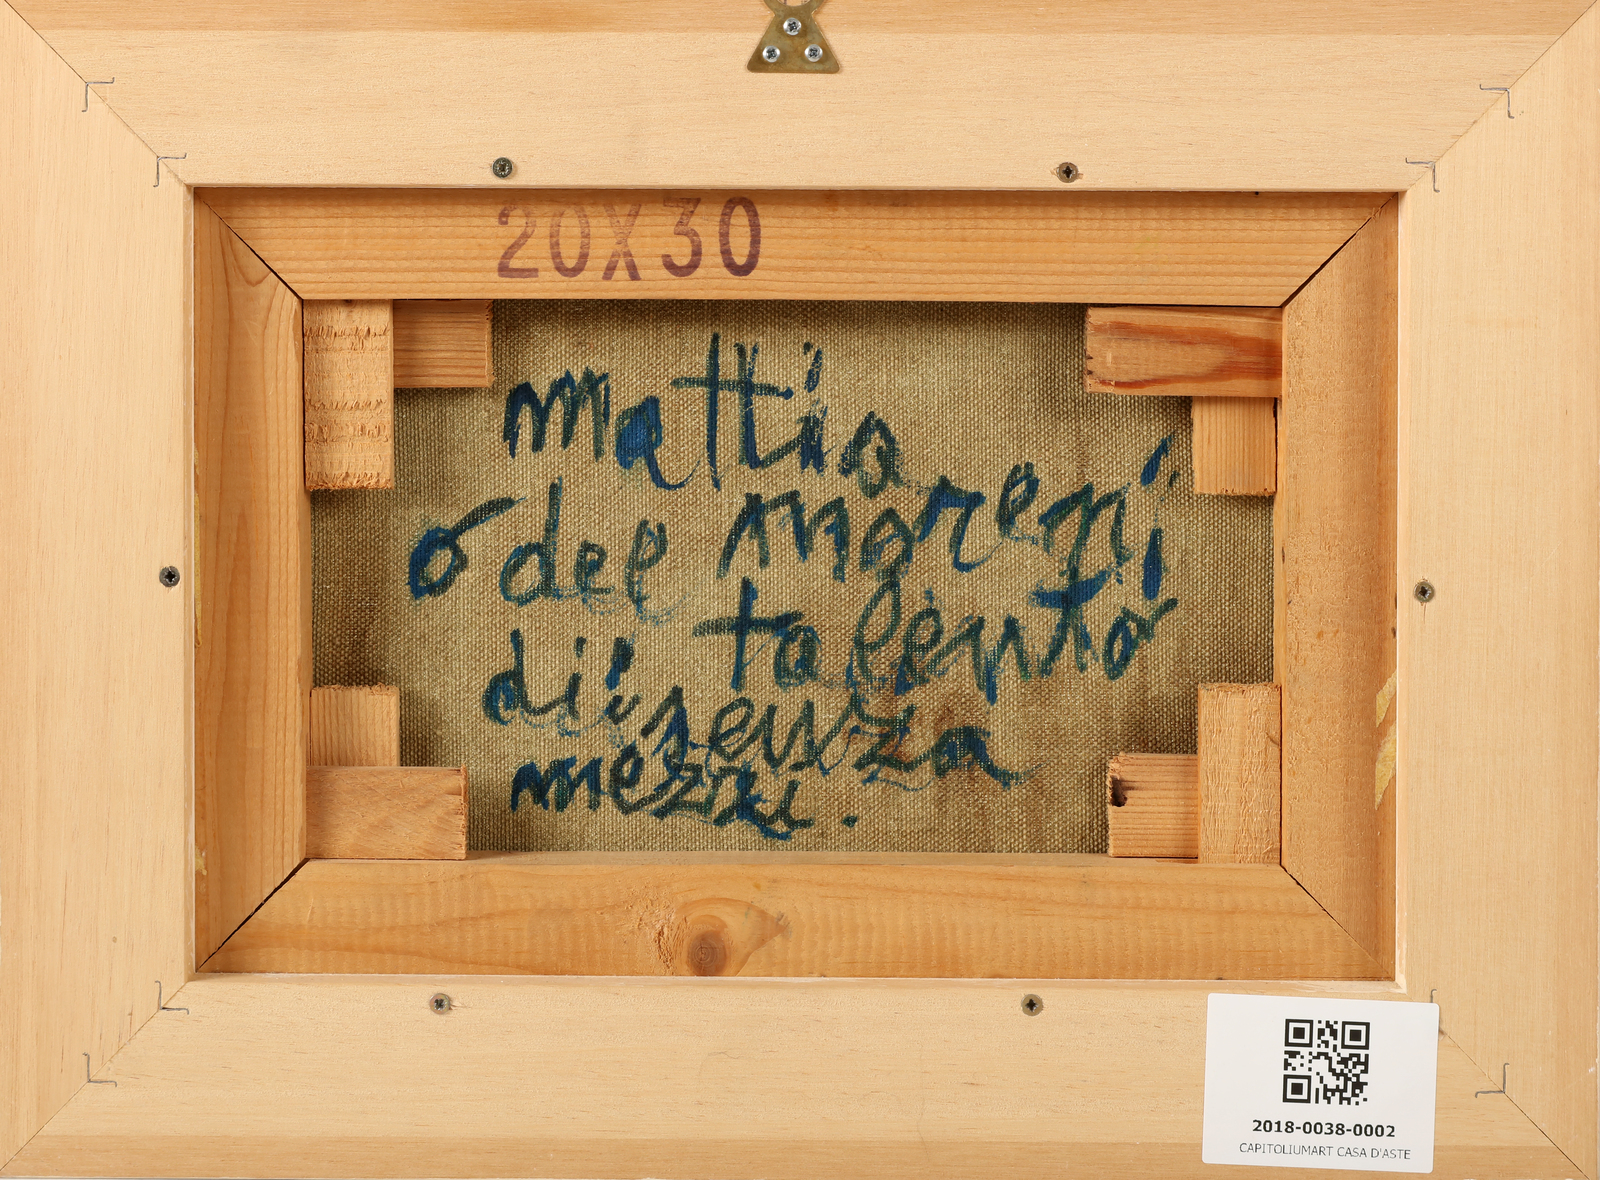 20X30
mattia
moreni
o del talento
di senza
mezzi.
2018-0038-0002
CAPITOLIUMART CASA D'ASTE